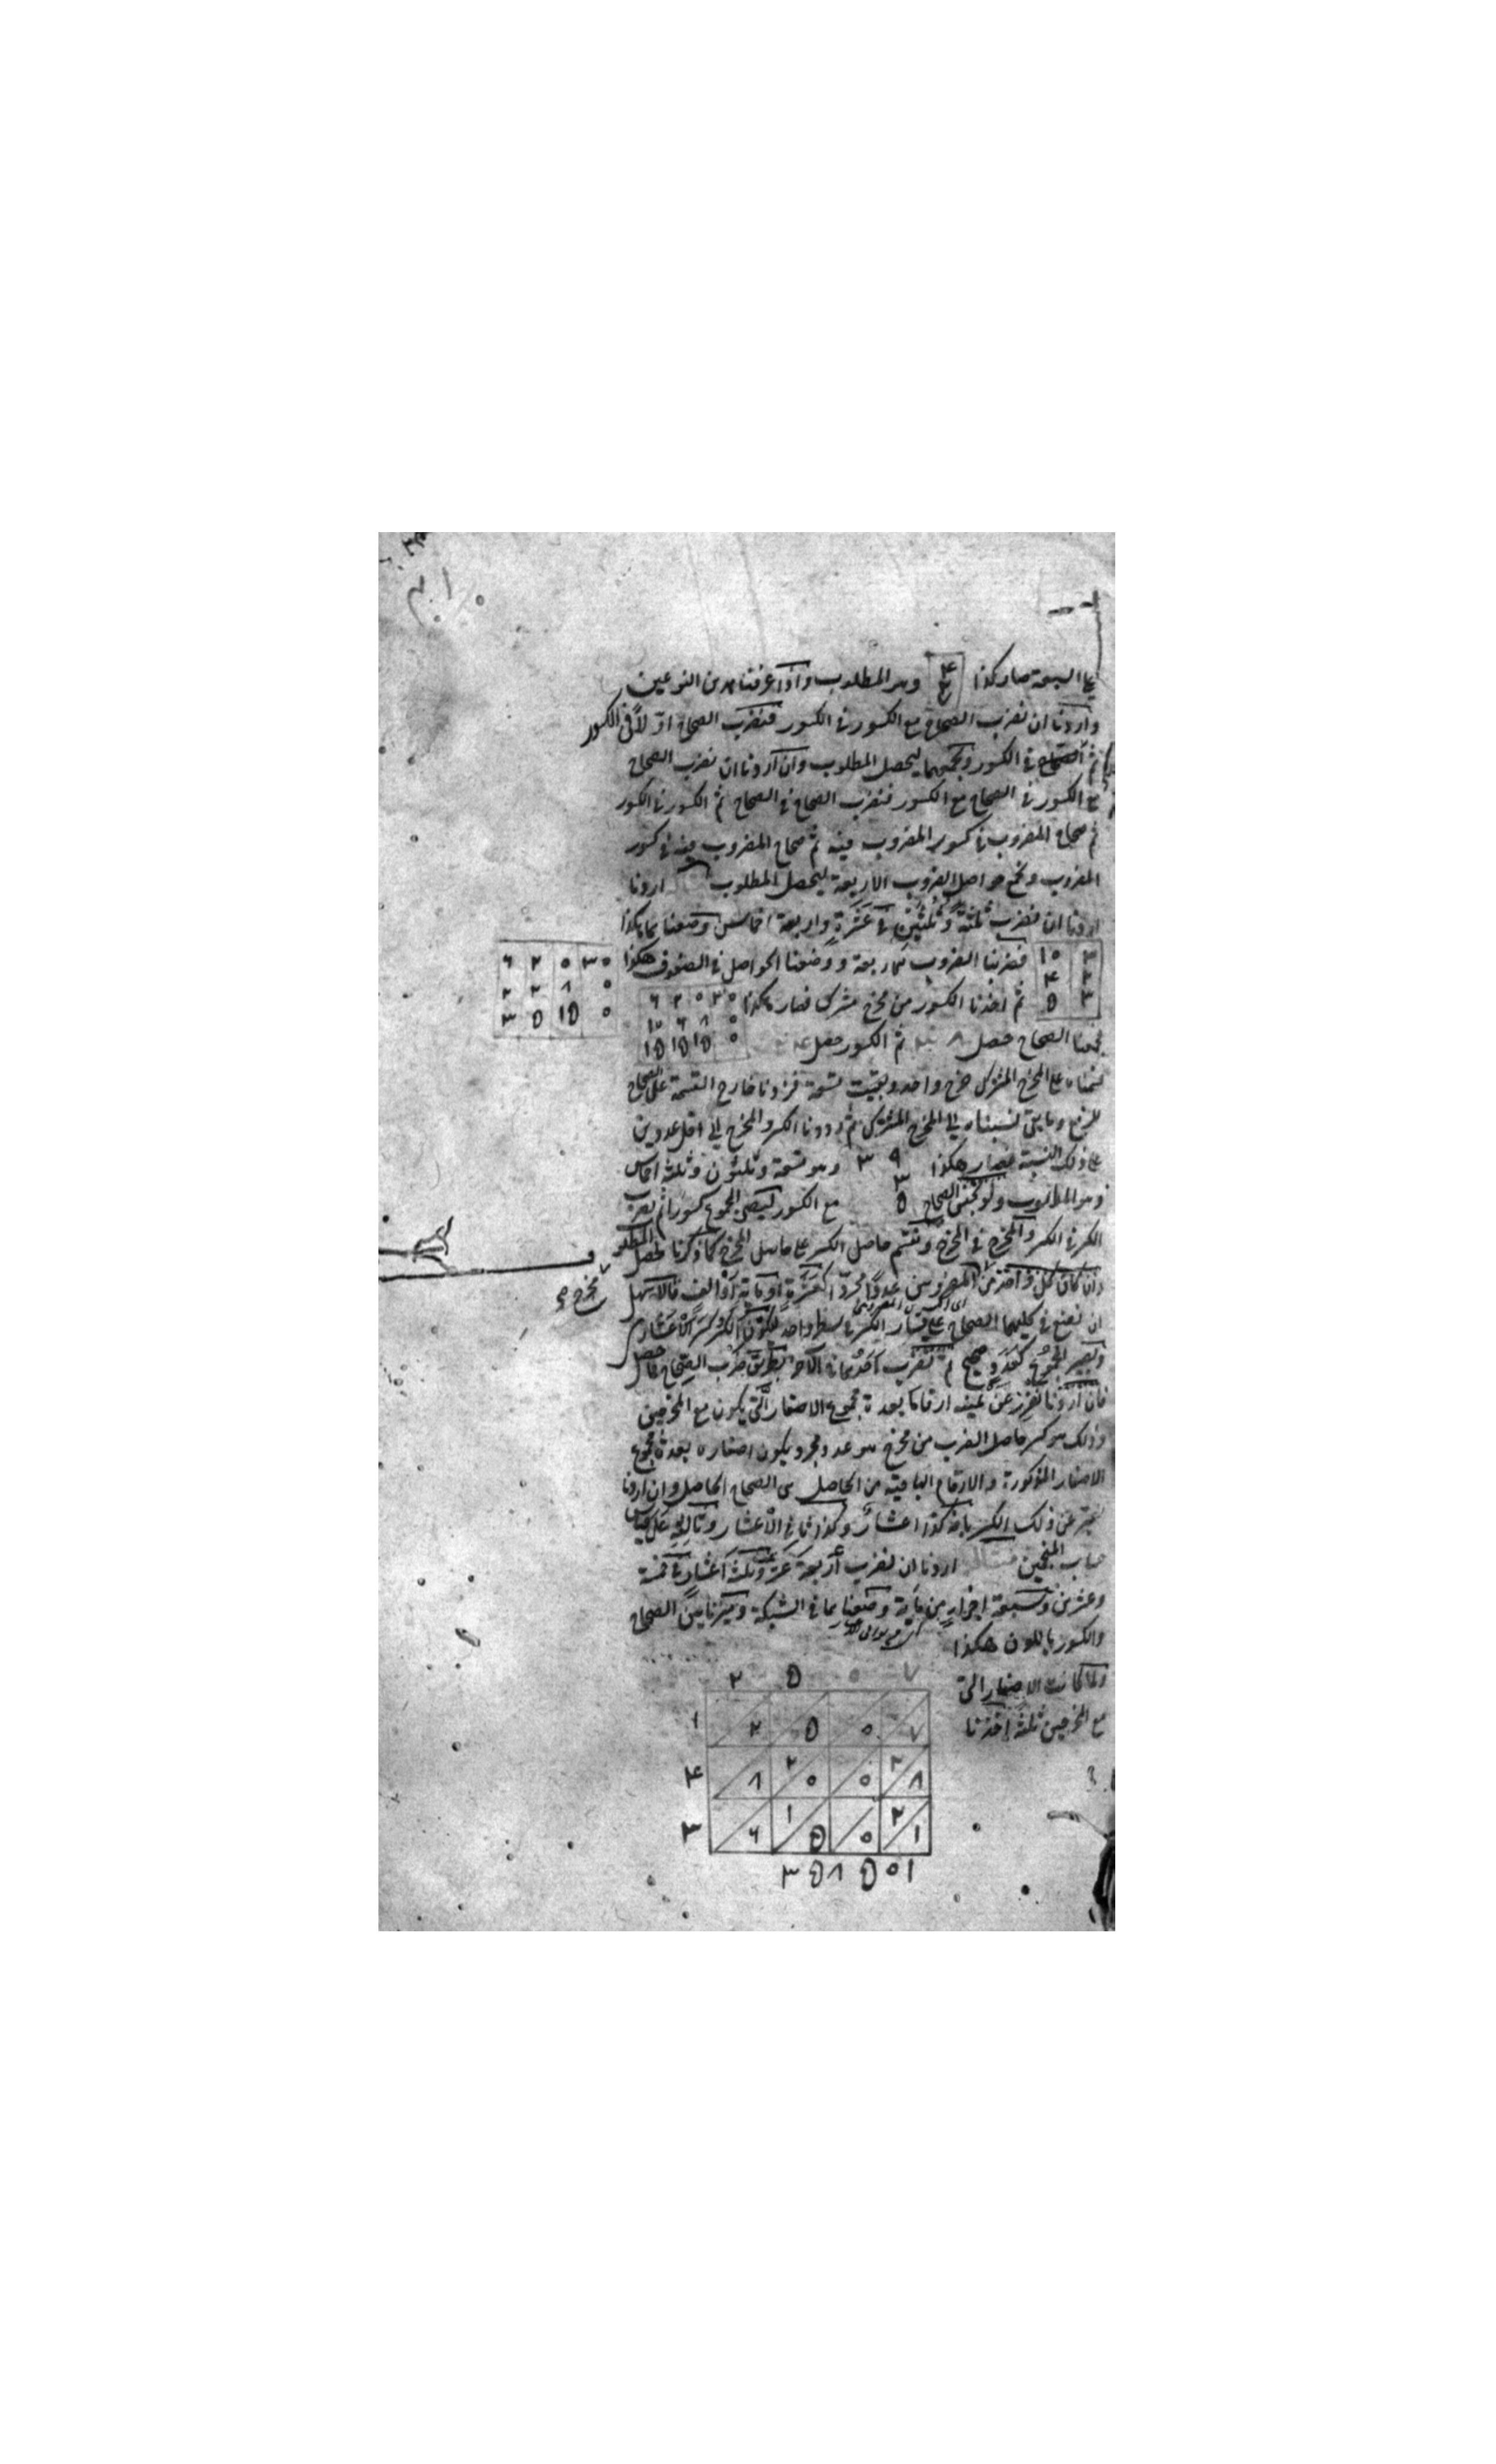 على السبعة صار كذا ٤ وهو المطلوب واذا عرفنا هذين النوعين
واردنا ان نضرب الصحاح مع الكسور في الكسور فنضرب الصحاح اولا في الكسور
ثم الكسور في الكسور ونجمعهما ليحصل المطلوب وان اردنا ان نضرب الصحاح
مع الكسور في الصحاح مع الكسور فنضرب الصحاح في الصحاح ثم الكسور في الكسور
ثم صحاح المضروب في كسور المضروب فيه ثم صحاح المضروب فيه في كسور
المضروب ونجمع حواصل الضروب الاربعة ليحصل المطلوب اردنا
اردنا ان نضرب ثلثة وثلثين في عشرة واربعة اخماس وضعناهما هكذا
٣ ١٠
٢ ٤
٣ ٥
فضربنا الضروب الاربعة ووضعنا الحواصل في الصفوف هكذا
٣٠ ٥ ٢ ٦
٠ ٨ ٢ ٢
٠ ١٥ ٥ ٣
ثم اخذنا الكسور من مخرج مشترك فصار هكذا
٣٠ ٥ ٢ ٦
٠ ٨ ٦ ١٠
٠ ١٥ ١٥ ١٥
فجمعنا الصحاح حصل ٣٨ ثم الكسور حصل ٢٤
قسمناه على المخرج المشترك خرج واحد وبقيت تسعة فزدنا خارج القسمة على الصحاح
وما بقي نسبناه الى المخرج المشترك ثم رددنا الكسر والمخرج الى اقل عددين
على تلك النسبة فصار هكذا ٣٩ وهو تسعة وثلثون وثلثة اخماس
٣
٥
وهو المطلوب ولو جنسنا الصحاح مع الكسور ليصير المجموع كسورا ثم نضرب
الكسر في الكسر والمخرج في المخرج ونقسم حاصل الكسر على حاصل المخرج كما ذكرنا لحصل المطلوب
وان كان كل واحد من المضروبين عددا مجردا كعشرة او مائة او الف فالاسهل
مخرج
ان نضع في كليهما الصحاح على يسار الكسر في سطر واحد ليكون الكسر كسر الاعشار
ويصير المجموع كعدد صحيح ثم نضرب احدهما في الآخر بطريق ضرب الصحاح فما حصل
فان اردنا نفرز عن يمينه ارقاما بعدة مجموع الاصفار التي يكون مع المخرجين
وذلك هو كسر حاصل الضرب من مخرج هو عدد مجرد يكون اصفاره بعدة مجموع
الاصفار المذكورة والارقام الباقية من الحاصل هي الصحاح الحاصل وان اردنا
نعبر عن ذلك الكسر بانه كذا اعشار وكذا ثاني الاعشار وثالثه على قياس
حساب المنجمين مثاله اردنا ان نضرب اربعة عشر وثلثة اعشار في خمسة
وعشرين وسبعة اجزاء من مائة وضعناهما في الشبكة وميزنا بين الصحاح
والكسور باللون هكذا
ولما كانت الاصفار التي
مع المخرجين ثلثة اخذنا
٢ ٥ ٠ ٧
١ ٢ ٥ ٠ ٧
٤ ٨ ٢ ٠ ٠ ٢ ٨
٣ ٦ ١ ٥ ٠ ٢ ١
٣ ٥ ٨ ٥ ٠ ١